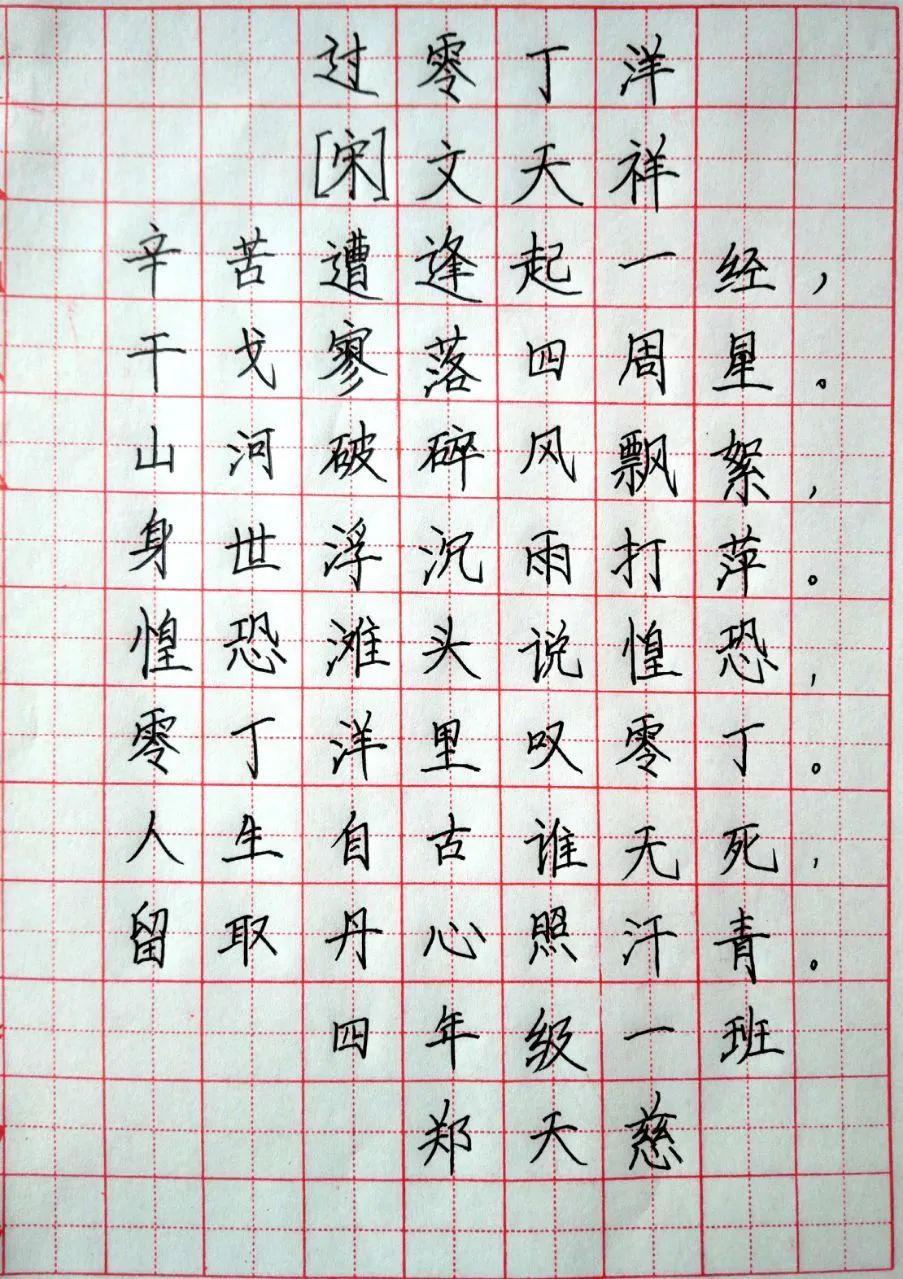 过零丁洋
[宋]文天祥
辛苦遭逢起一经，
干戈寥落四周星。
山河破碎风飘絮，
身世浮沉雨打萍。
惶恐滩头说惶恐，
零丁洋里叹零丁。
人生自古谁无死，
留取丹心照汗青。
四年级一班
郑天慈